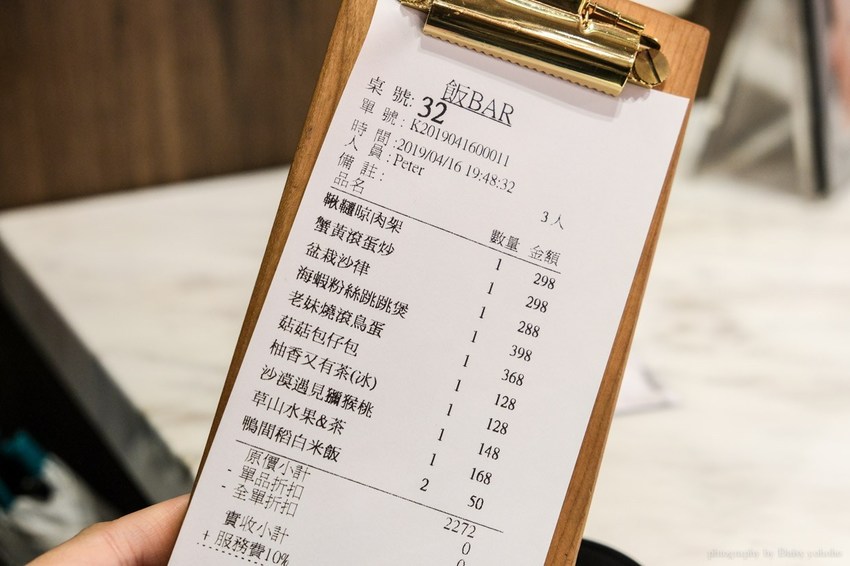 飯BAR
桌 號: 32
單 號: K2019041600011
時 間:2019/04/16 19:48:32
人 員: Peter 3 人
備 註:
品名 數量 金額
鞦韆晾肉架 1 298
蟹黃滾蛋炒 1 298
盆栽沙律 1 288
海蝦粉絲跳跳煲 1 398
老妹燒滾鳥蛋 1 368
菇菇包仔包 1 128
柚香又有茶(冰) 1 128
沙漠遇見獼猴桃 1 148
草山水果&茶 1 168
鴨間稻白米飯 2 50
原價小計 2272
- 單品折扣 0
- 全單折扣 0
實收小計
+ 服務費10%